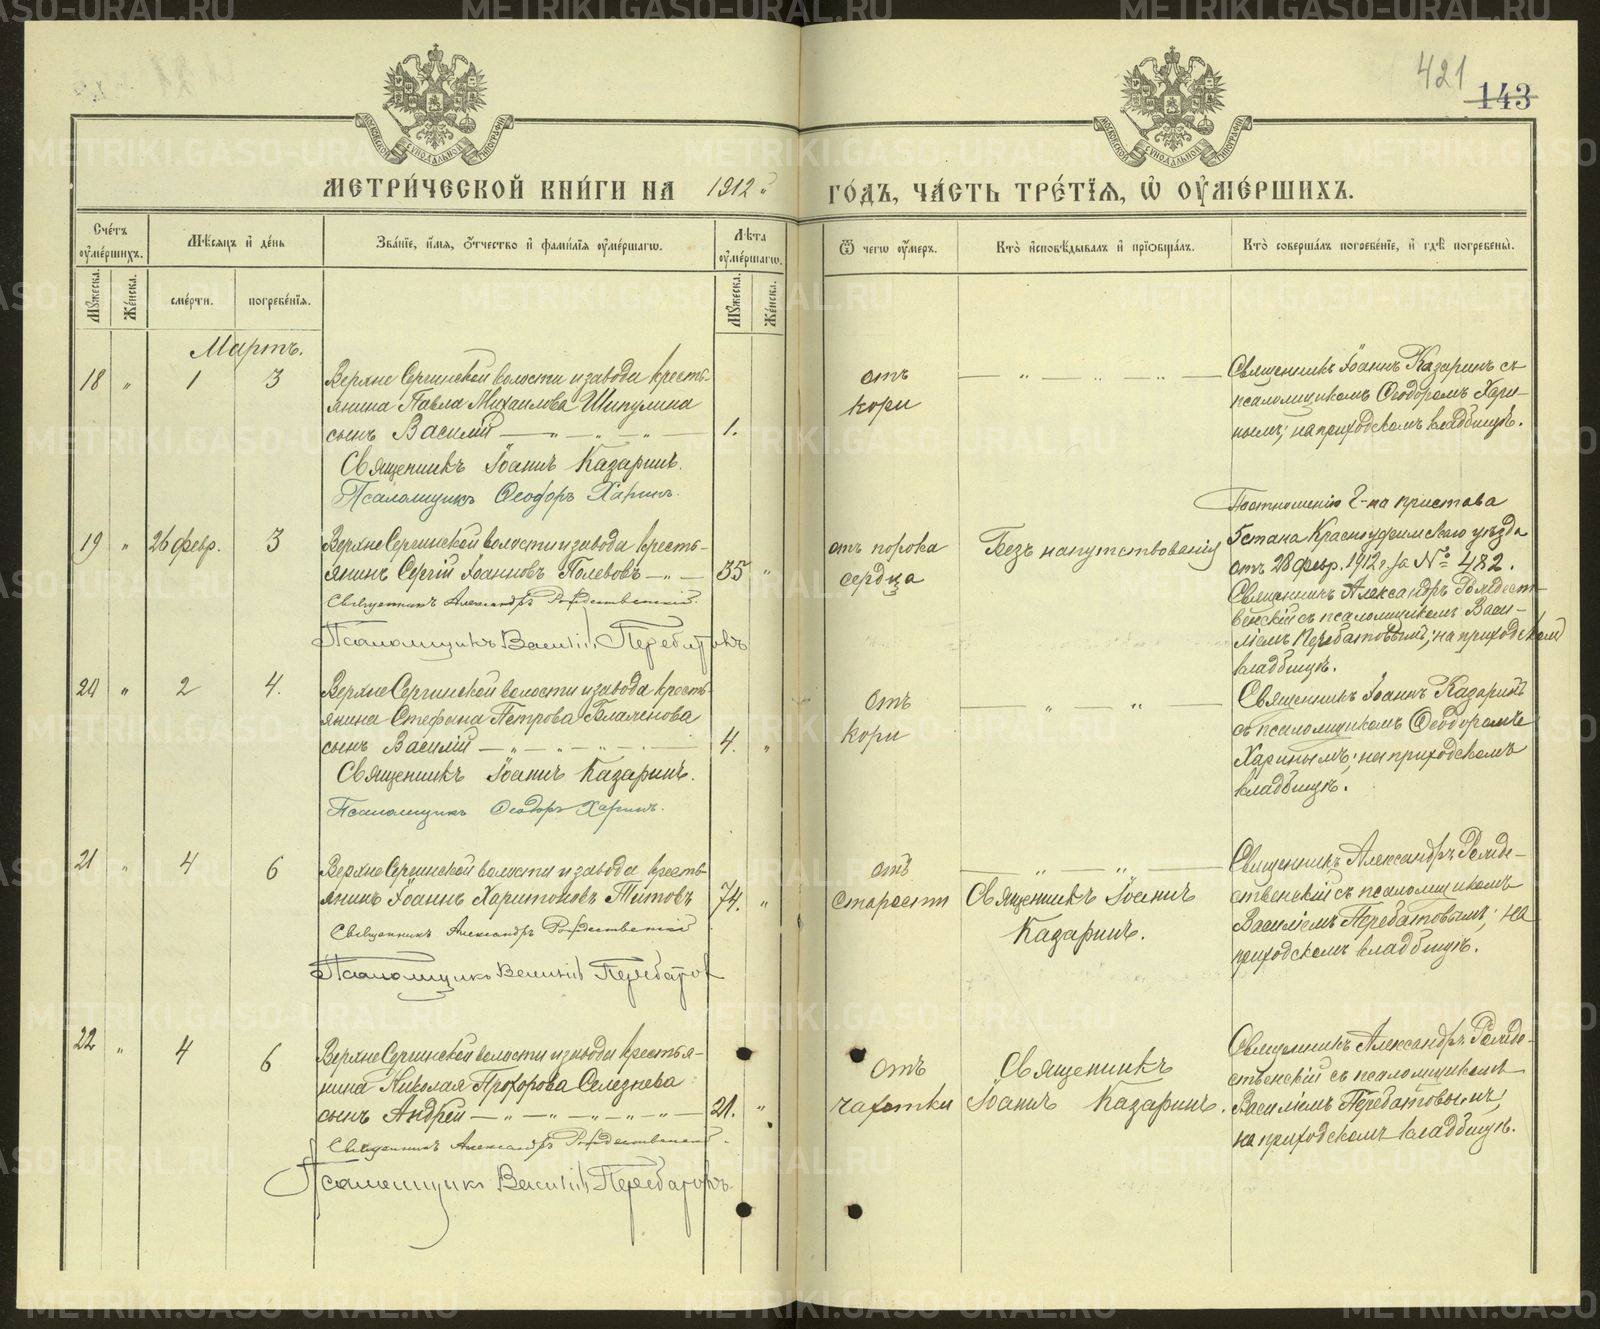 421
143
МОСКОВСКОЙ СѴНОДАЛЬНОЙ ТИПОГРАФІИ
МОСКОВСКОЙ СѴНОДАЛЬНОЙ ТИПОГРАФІИ
МЕТРИ́ЧЕСКОЙ КНИ́ГИ НА 1912 й ГО́ДЪ, ЧА́СТЬ ТРЕ́ТЇѦ, Ѡ҆ ОУ҆МЕ́РШИХЪ.
Сче́тъ оу҆ме́ршихъ.
Мѣ́сѧцъ и҆ де́нь
Зва́нїе, и҆́мѧ, ѻ҆́тчество и҆ фами́лїѧ оу҆ме́ршагѡ.
Лѣ́та оу҆ме́ршагѡ.
Ѿ чегѡ̀ оу҆́меръ.
Кто̀ и҆сповѣ́дывалъ и҆ прїѡбща́лъ.
Кто̀ соверша́лъ погребе́нїе, и҆ гдѣ̀ погребены̀.
Мꙋ́жеска.
Же́нска.
сме́рти.
погребе́нїѧ.
Мꙋ́жеска.
Же́нска.
Мартъ.
18 " 1 3
Верхне Сергинской волости и завода кресть-
янина Павла Михаилова Шипулина
сынъ Василій — " — " — " — 1.
Священникъ Іоаннъ Казаринъ.
Псаломщикъ Ѳеодоръ Харинъ.
отъ
кори
— " — " — " —
Священникъ Іоаннъ Казаринъ съ
псаломщикомъ Ѳеодоромъ Хари-
нымъ; на приходскомъ кладбищѣ.
19 " 26 февр. 3
Верхне Сергинской волости и завода кресть-
янинъ Сергій Іоанновъ Полевовъ — " — 35 "
Священникъ Александръ Рождественскій.
Псаломщикъ Василій Перебатовъ
отъ порока
сердца
Безъ напутствованія
По отношенію г-на пристава
5 стана Красноуфимскаго уѣзда
отъ 28 февр. 1912 г. за № 482.
Священникъ Александръ Рождест-
венскій съ псаломщикомъ Васи-
ліемъ Перебатовымъ; на приходскомъ
кладбищѣ.
20 " 2 4.
Верхне Сергинской волости и завода кресть-
янина Стефана Петрова
сынъ Василій — " — " — " — 4. "
Священникъ Іоаннъ Казаринъ.
Псаломщикъ Ѳеодоръ Харинъ.
отъ
кори
— " — " —
Священникъ Іоаннъ Казаринъ
съ псаломщикомъ Ѳеодоромъ
Харинымъ; на приходскомъ
кладбищѣ.
21 " 4 6
Верхне Сергинской волости и завода кресть-
янинъ Іоаннъ Харитоновъ Титовъ 74. "
Священникъ Александръ Рождественскій
Псаломщикъ Василій Перебатов
отъ
старости
— " — " —
Священникъ Іоаннъ
Казаринъ.
Священникъ Александръ Рожде-
ственскій съ псаломщикомъ
Василіемъ Перебатовымъ; на
приходскомъ кладбищѣ.
22 " 4 6
Верхне Сергинской волости и завода крестья-
нина Николая Прохорова Селезнева
сынъ Андрей — " — " — " — " — 21. "
Священникъ Александръ Рождественскій.
Псаломщикъ Василій Перебатовъ.
отъ
чахотки
Священникъ
Іоаннъ Казаринъ.
Священникъ Александръ Рожде-
ственскій съ псаломщикомъ
Василіемъ Перебатовымъ;
на приходскомъ кладбищѣ.
METRIKI.GASO-URAL.RU